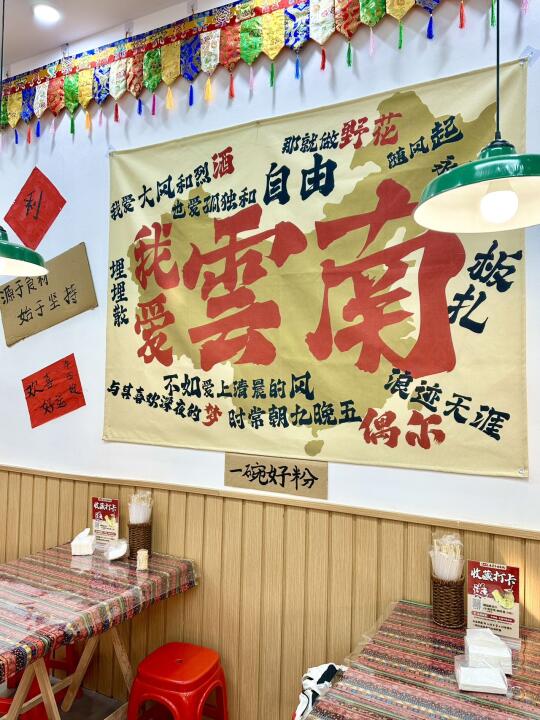 那就做野花
随风起
我爱大风和烈酒
也爱孤独和自由
我爱
雲南
埋埋散
板扎
不如爱上清晨的风
与其喜欢深夜的梦
时常朝九晚五
偶尔
浪迹天涯
利
源于食材
始于坚持
欢喜
好运
一碗好粉
收藏打卡
收藏打卡